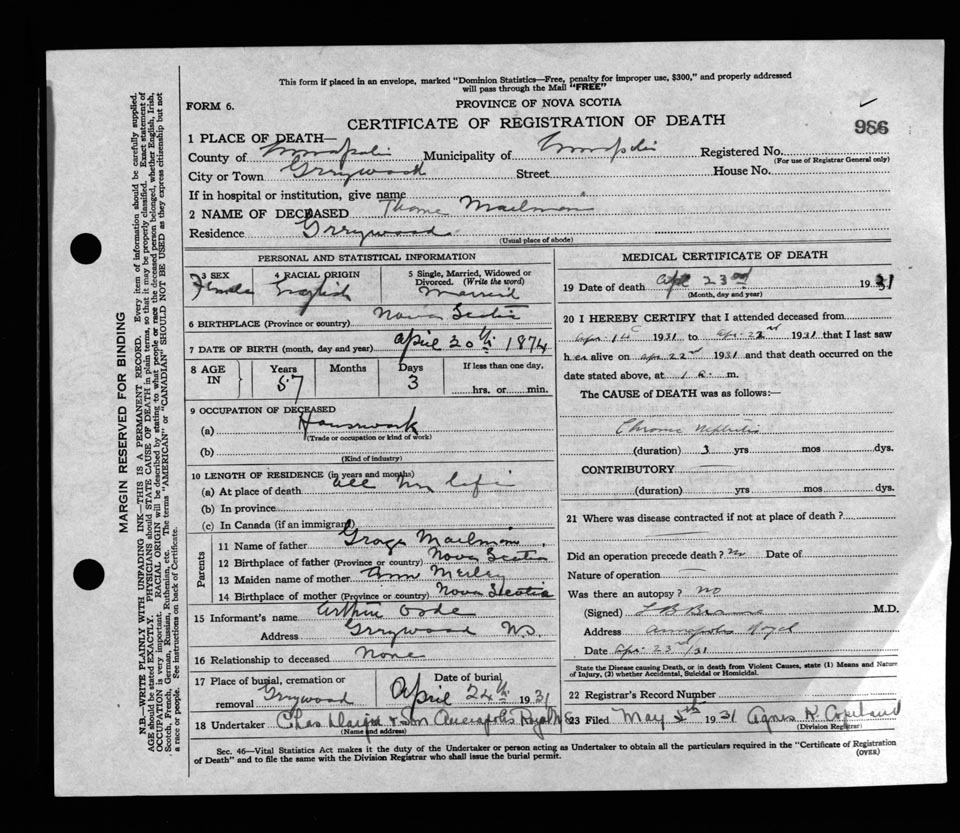 This form if placed in an envelope, marked "Dominion Statistics—Free, penalty for improper use, $300," and properly addressed
will pass through the Mail "FREE"
FORM 6.
PROVINCE OF NOVA SCOTIA
CERTIFICATE OF REGISTRATION OF DEATH
986
1 PLACE OF DEATH—
County of Annapolis Municipality of Annapolis Registered No.
(For use of Registrar General only)
City or Town Greywood Street House No.
If in hospital or institution, give name
2 NAME OF DECEASED Mailman
Residence Greywood
(Usual place of abode)
PERSONAL AND STATISTICAL INFORMATION
3 SEX Female
4 RACIAL ORIGIN English
5 Single, Married, Widowed or Divorced. (Write the word) Married
6 BIRTHPLACE (Province or country) Nova Scotia
7 DATE OF BIRTH (month, day and year) April 20th 1874
8 AGE IN Years 57 Months Days 3 If less than one day, hrs. or min.
9 OCCUPATION OF DECEASED
(a) Housework
(Trade or occupation or kind of work)
(b)
(Kind of industry)
10 LENGTH OF RESIDENCE (in years and months)
(a) At place of death all her life
(b) In province
(c) In Canada (if an immigrant)
Parents
11 Name of father George Mailman
12 Birthplace of father (Province or country) Nova Scotia
13 Maiden name of mother Ann
14 Birthplace of mother (Province or country) Nova Scotia
15 Informant's name Arthur
Address Greywood N.S.
16 Relationship to deceased None
17 Place of burial, cremation or removal Greywood
Date of burial April 24th 1931
18 Undertaker Chas & Son Annapolis Royal N.S.
(Name and address)
MEDICAL CERTIFICATE OF DEATH
19 Date of death Apl 23rd 1931
(Month, day and year)
20 I HEREBY CERTIFY that I attended deceased from
Apr. 14 1931 to Apr. 22nd 1931 that I last saw
her alive on Apr 22nd 1931 and that death occurred on the
date stated above, at 1 a. m.
The CAUSE of DEATH was as follows:—
Chronic Nephritis
(duration) 3 yrs mos dys.
CONTRIBUTORY
(duration) yrs mos dys.
21 Where was disease contracted if not at place of death?
Did an operation precede death? No Date of
Nature of operation
Was there an autopsy? No
(Signed) L B M.D.
Address Annapolis Royal
Date Apr. 23rd/31
State the Disease causing Death, or in death from Violent Causes, state (1) Means and Nature
of Injury, (2) whether Accidental, Suicidal or Homicidal.
22 Registrar's Record Number
23 Filed May 5th 1931 Agnes K. Copeland
(Division Registrar)
Sec. 46—Vital Statistics Act makes it the duty of the Undertaker or person acting as Undertaker to obtain all the particulars required in the "Certificate of Registration
of Death" and to file the same with the Division Registrar who shall issue the burial permit.
(OVER)
MARGIN RESERVED FOR BINDING
N.B.—WRITE PLAINLY WITH UNFADING INK—THIS IS A PERMANENT RECORD. Every item of information should be carefully supplied.
AGE should be stated EXACTLY. PHYSICIANS should STATE CAUSE OF DEATH in plain terms, so that it may be properly classified. Exact statement of
OCCUPATION is very important. RACIAL ORIGIN will be described by stating to what people or race the deceased person belonged, whether English, Irish,
Scotch, French, German, Russian, Ruthenian, etc. The terms "AMERICAN" or "CANADIAN" SHOULD NOT BE USED as they express citizenship but not
a race or people. See instructions on back of Certificate.